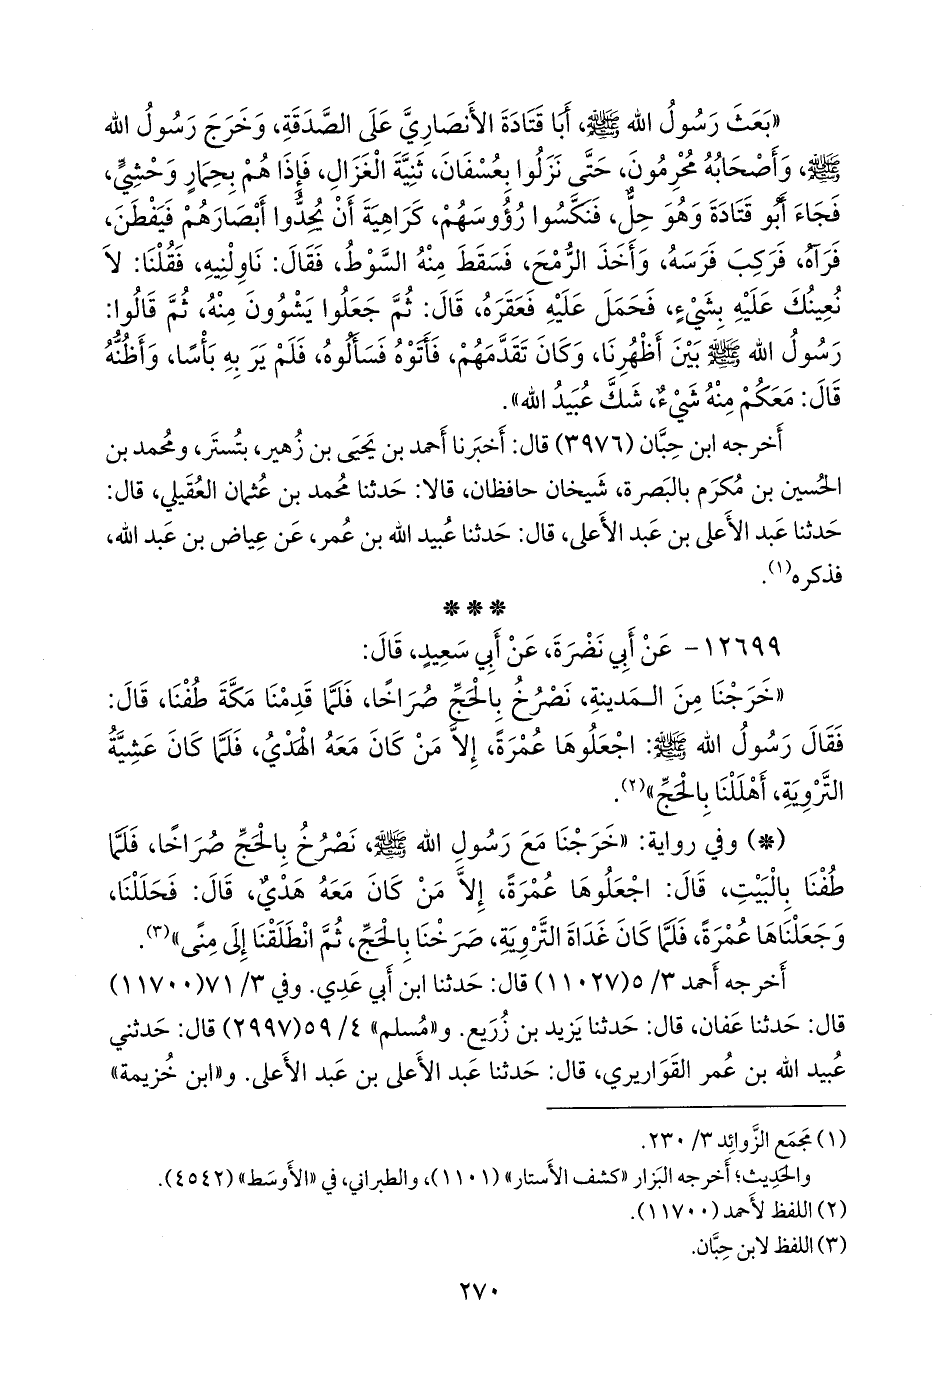 «بَعَثَ رَسُولُ الله ﷺ، أَبَا قَتَادَةَ الأَنصَارِيَّ عَلَى الصَّدَقَةِ، وَخَرَجَ رَسُولُ الله
ﷺ، وَأَصْحَابُهُ مُحْرِمُونَ، حَتَّى نَزَلُوا بِعُسْفَانَ، ثَنِيَّةَ الغَزَالِ، فَإِذَا هُمْ بِحِمَارٍ وَحْشِيٍّ،
فَجَاءَ أَبُو قَتَادَةَ وَهُوَ حِلٌّ، فَنَكَّسُوا رُؤُوسَهُمْ، كَرَاهِيَةَ أَنْ يُحِدُّوا أَبْصَارَهُمْ فَيَفْطَنَ،
فَرَآهُ، فَرَكِبَ فَرَسَهُ، وَأَخَذَ الرُّمْحَ، فَسَقَطَ مِنْهُ السَّوْطُ، فَقَالَ: نَاوِلْنِيهِ، فَقُلْنَا: لاَ
نُعِينُكَ عَلَيْهِ بِشَيْءٍ، فَحَمَلَ عَلَيْهِ فَعَقَرَهُ، قَالَ: ثُمَّ جَعَلُوا يَشْوُونَ مِنْهُ، ثُمَّ قَالُوا:
رَسُولُ الله ﷺ بَيْنَ أَظْهُرِنَا، وَكَانَ تَقَدَّمَهُمْ، فَأَتَوْهُ فَسَأَلُوهُ، فَلَمْ يَرَ بِهِ بَأْسًا، وَأَظُنُّهُ
قَالَ: مَعَكُمْ مِنْهُ شَيْءٌ، شَكَّ عُبَيدُ الله».
أَخرجه ابن حِبَّان (٣٩٧٦) قال: أَخبَرنا أَحمد بن يَحيَى بن زُهير، بتُستَر، ومُحمد بن
الحُسين بن مُكرَم بالبَصرة، شَيخان حافظان، قالا: حَدثنا مُحمد بن عُثمان العُقَيلي، قال:
حَدثنا عَبد الأَعلى بن عَبد الأَعلى، قال: حَدثنا عُبيد الله بن عُمر، عَن عِياض بن عَبد الله،
فذكره(١).
* * *
١٢٦٩٩- عَنْ أَبِي نَضْرَةَ، عَنْ أَبِي سَعِيدٍ، قَالَ:
«خَرَجْنَا مِنَ الـمَدينةِ، نَصْرُخُ بِالْحَجِّ صُرَاخًا، فَلَمَّا قَدِمْنَا مَكَّةَ طُفْنَا، قَالَ:
فَقَالَ رَسُولُ الله ﷺ: اجْعَلُوهَا عُمْرَةً، إِلاَّ مَنْ كَانَ مَعَهُ الهَدْيُ، فَلَمَّا كَانَ عَشِيَّةُ
التَّرْوِيَةِ، أَهْلَلْنَا بِالْحَجِّ»(٢).
(*) وفي رواية: «خَرَجْنَا مَعَ رَسُولِ الله ﷺ، نَصْرُخُ بِالْحَجِّ صُرَاخًا، فَلَمَّا
طُفْنَا بِالْبَيْتِ، قَالَ: اجْعَلُوهَا عُمْرَةً، إِلاَّ مَنْ كَانَ مَعَهُ هَدْيٌ، قَالَ: فَحَلَلْنَا،
وَجَعَلْنَاهَا عُمْرَةً، فَلَمَّا كَانَ غَدَاةَ التَّرْوِيَةِ، صَرَخْنَا بِالْحَجِّ، ثُمَّ انْطَلَقْنَا إِلَى مِنًى»(٣).
أَخرجه أَحمد ٣/ ٥(١١٠٢٧) قال: حَدثنا ابن أَبي عَدِي. وفي ٣/ ٧١(١١٧٠٠)
قال: حَدثنا عَفان، قال: حَدثنا يَزيد بن زُرَيع. و«مُسلم» ٤/ ٥٩(٢٩٩٧) قال: حَدثني
عُبيد الله بن عُمر القَوَاريري، قال: حَدثنا عَبد الأَعلى بن عَبد الأَعلى. و«ابن خُزيمة»
(١) مَجمَع الزَّوائِد ٣/ ٢٣٠.
والحَديث؛ أَخرجه البَزار «كشف الأَستار» (١١٠١)، والطبراني، في «الأَوسَط» (٤٥٤٢).
(٢) اللفظ لأَحمد (١١٧٠٠).
(٣) اللفظ لابن حِبَّان.
٢٧٠